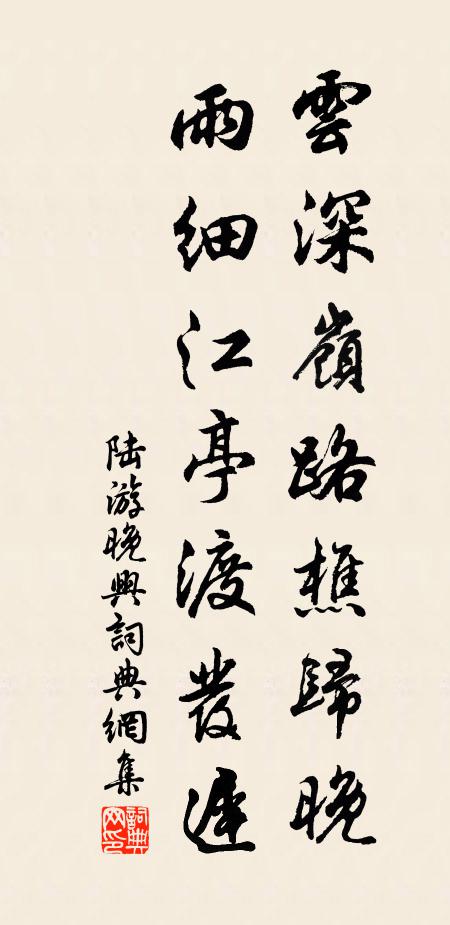 雲深嶺路樵歸晚
雨細江亭渡發遲
陸游晚興詞典網集
詞典網印